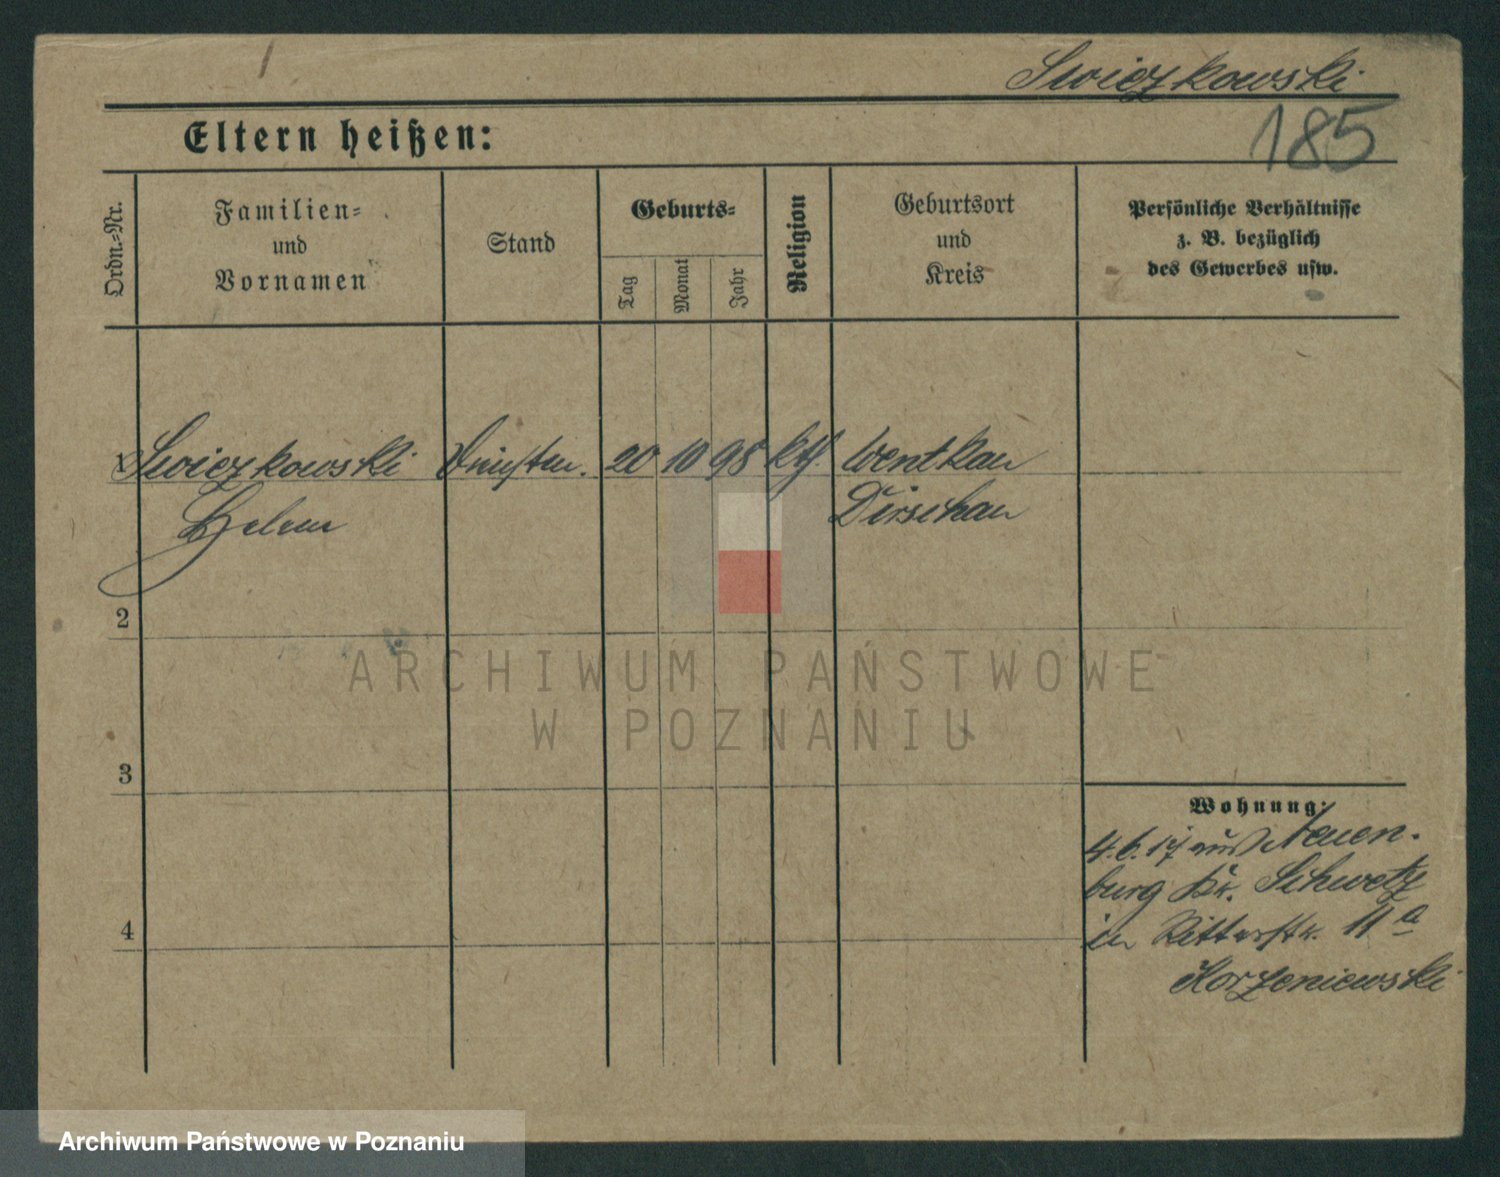 Swiczkowski
185
Eltern heißen:
Ordn.-Nr.
Familien-
und
Vornamen
Stand
Geburts-
Tag
Monat
Jahr
Religion
Geburtsort
und
Kreis
Persönliche Verhältnisse
z. B. bezüglich
des Gewerbes usw.
1 Swiczkowski 20 10 98 kth. Wentkau
Dirschau
2
3
4
Wohnung:
4.6.17 aus Neuen-
burg Kr. Schwetz
in Ritterstr. 11a
Korzeniewski
ARCHIWUM PAŃSTWOWE
W POZNANIU
Archiwum Państwowe w Poznaniu